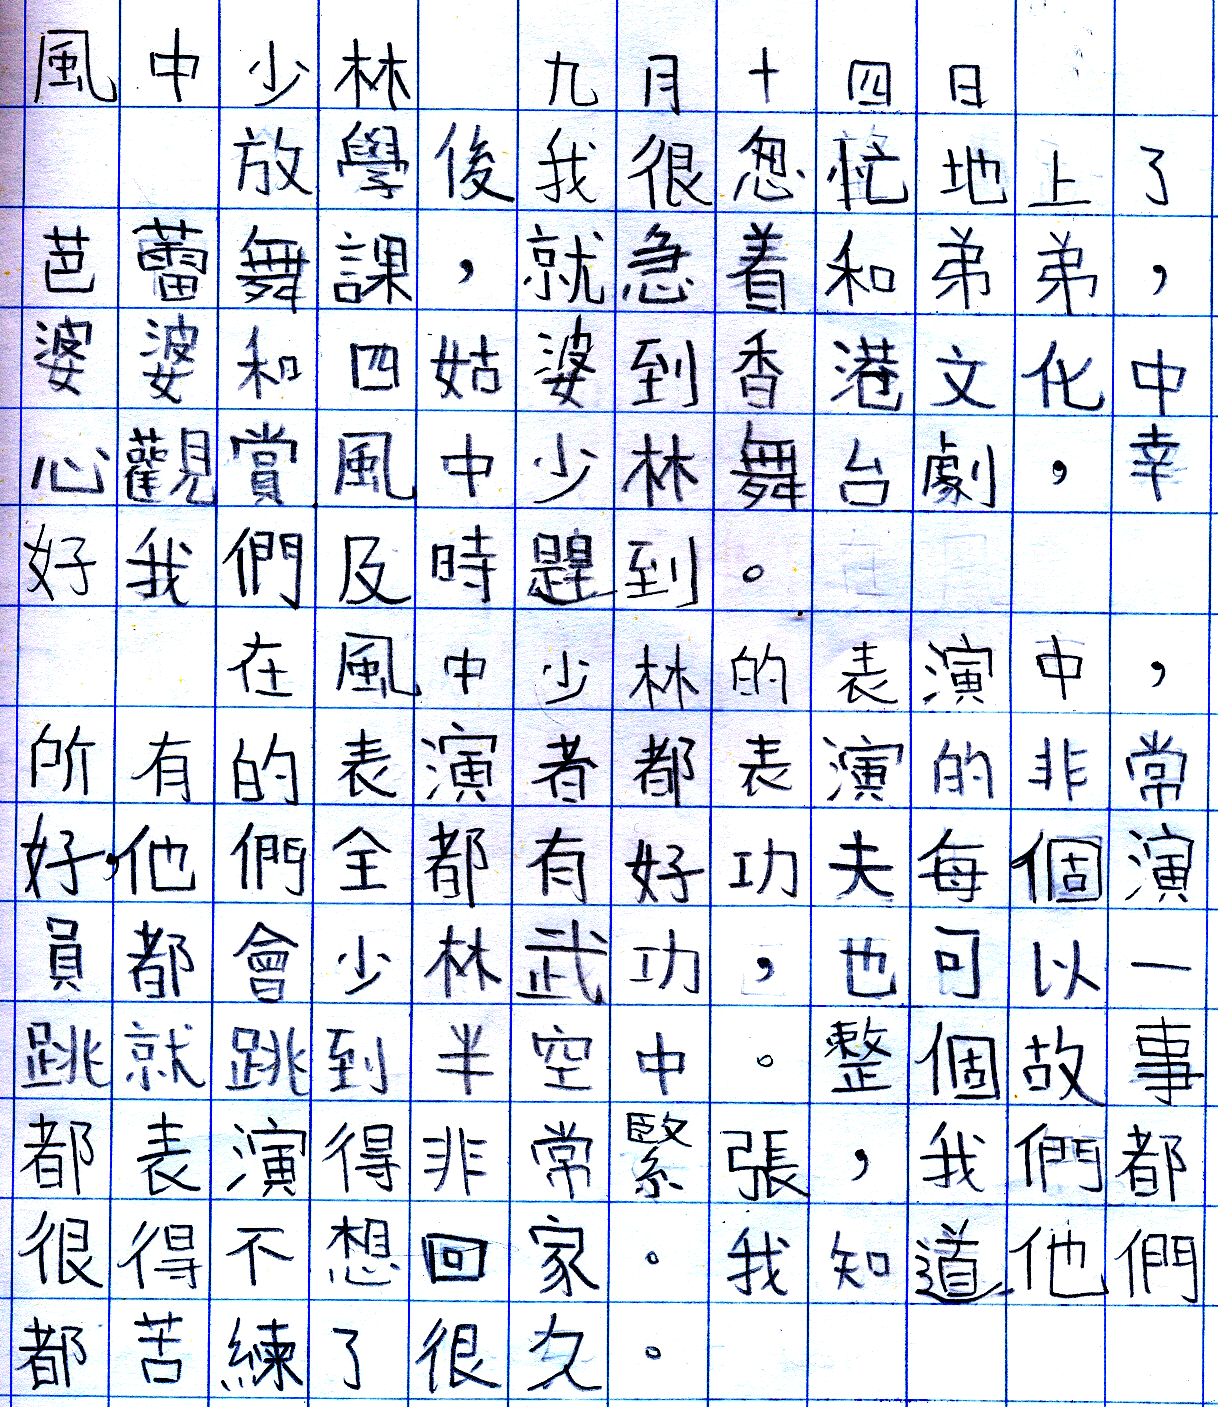 風中少林 九月十四日
放學後我很忽忙地上了
芭蕾舞課，就急着和弟弟，
婆婆和四姑婆到香港文化中
心觀賞風中少林舞台劇，幸
好我們及時趕到。
在風中少林的表演中，
所有的表演者都表演的非常
好，他們全都有好功夫每個演
員都會少林武功，也可以一
跳就跳到半空中。整個故事
都表演得非常緊張，我們都
很得不想回家。我知道他們
都苦練了很久。